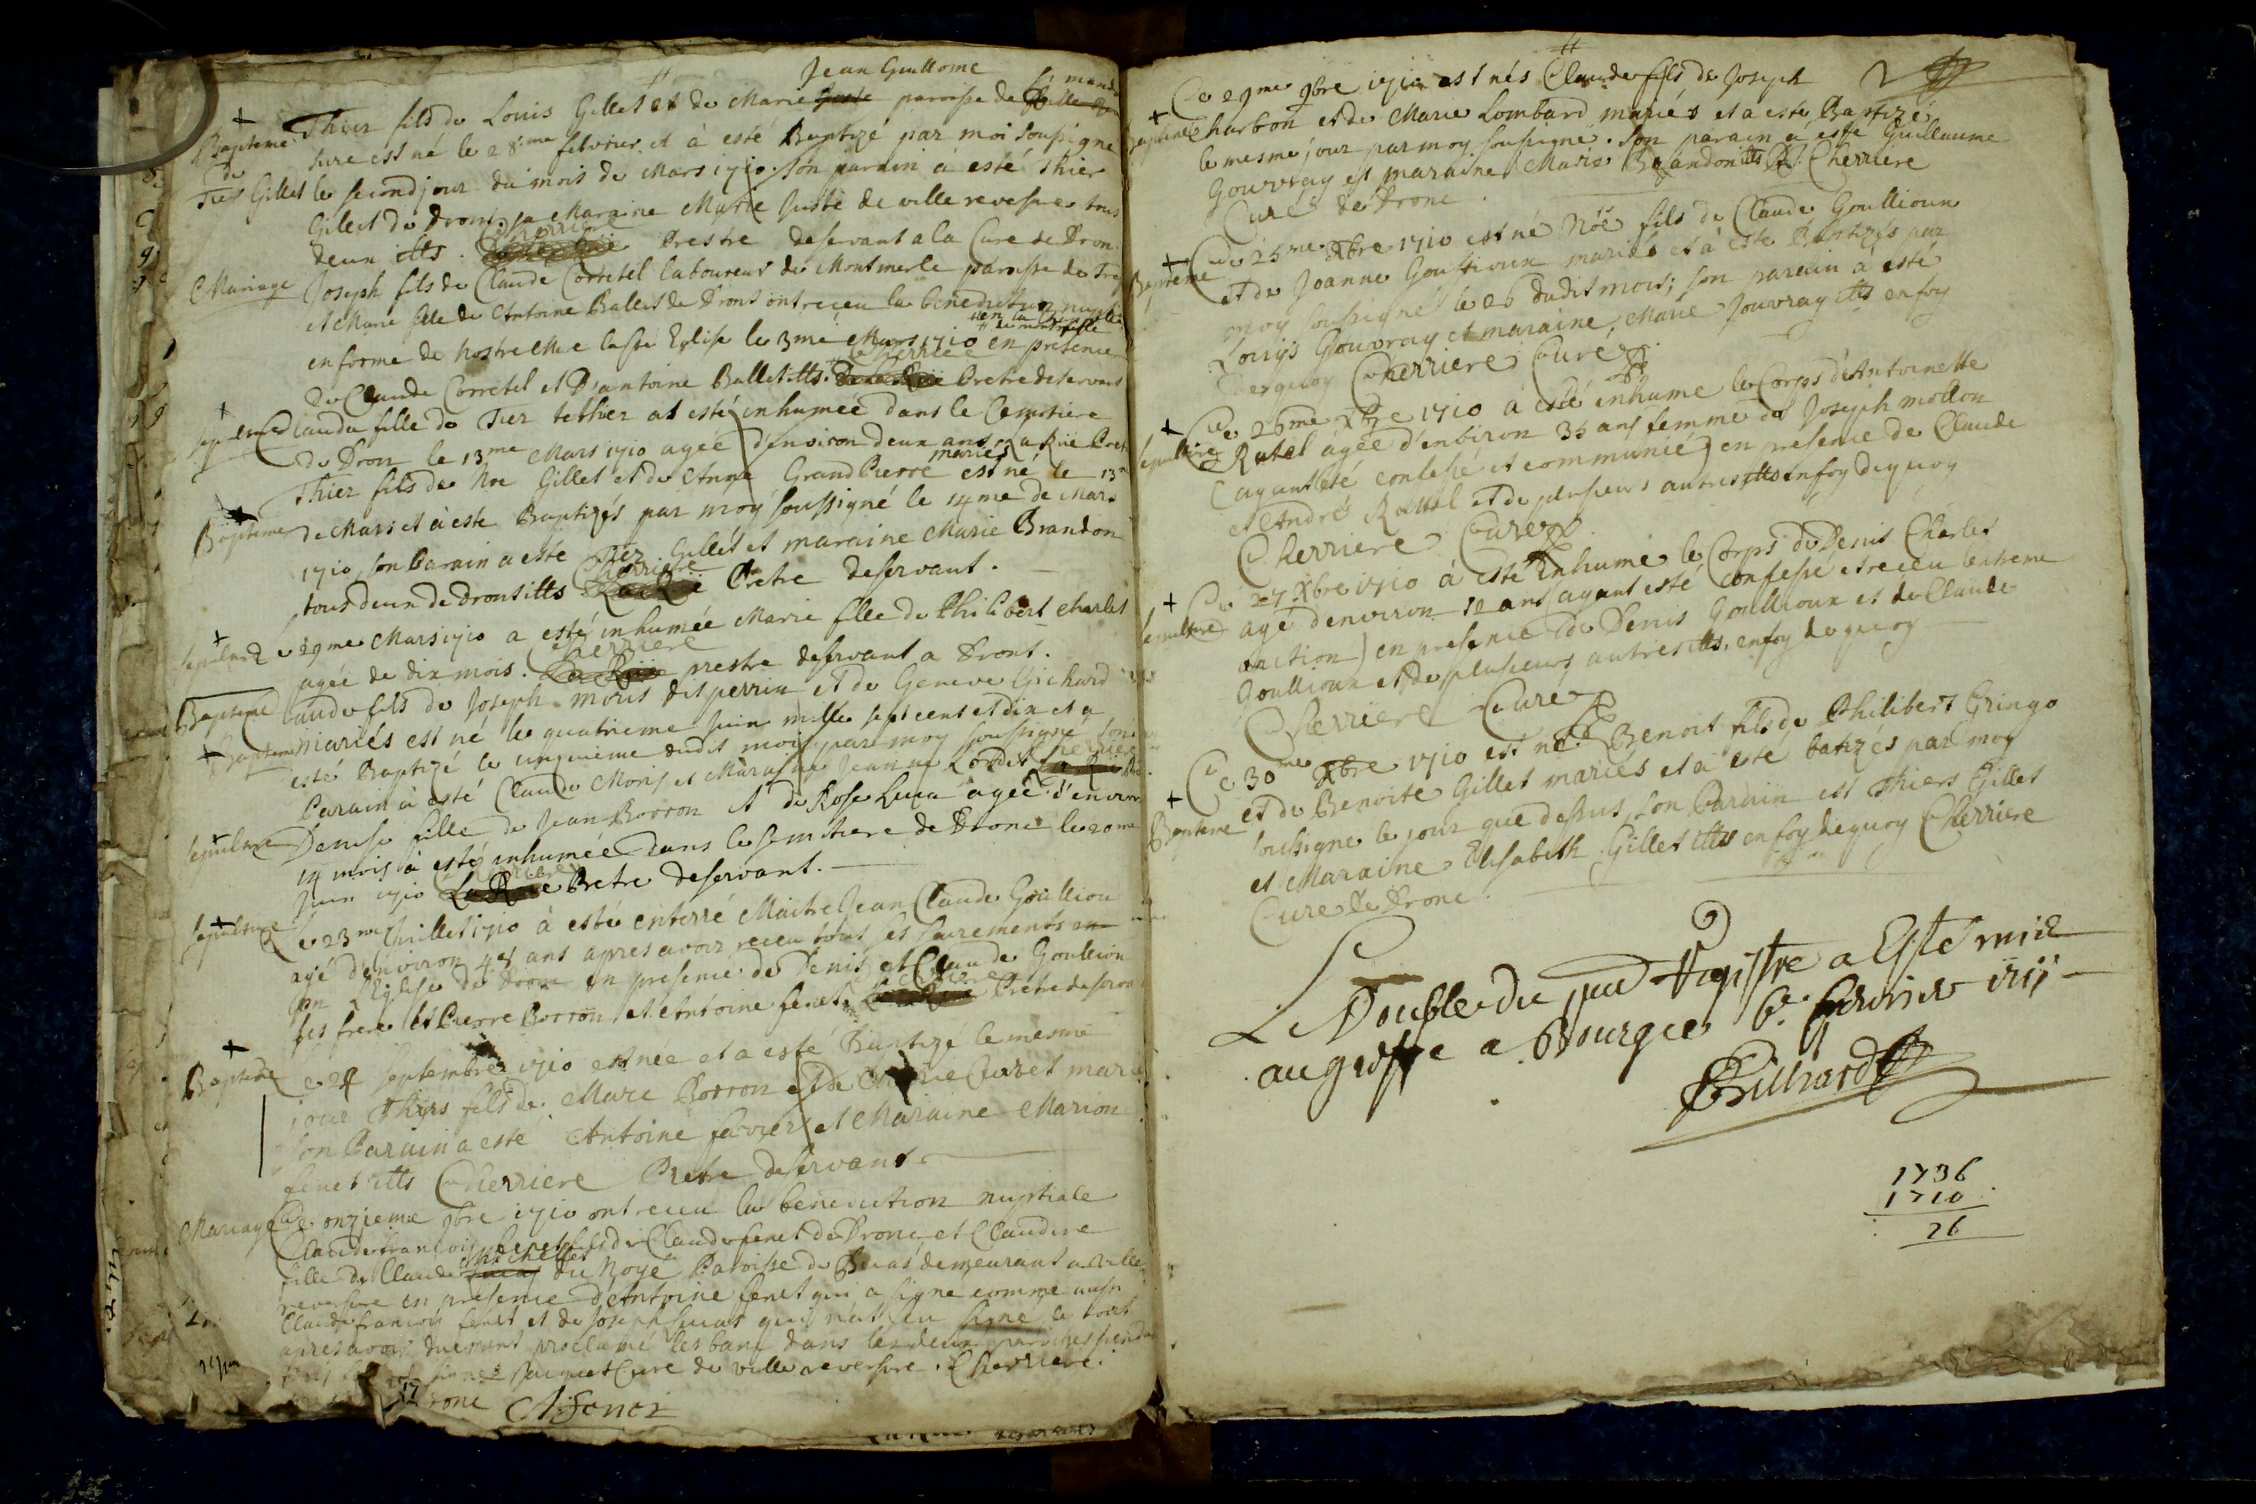 Jean Guillome
Baptême Thier fils de Louis Gillet et de Marie Juste paroisse de
sure est né le 28me febvrier et à esté Baptizé par moi soussigné
de Tier Gillet le second jour du mois de Mars 1710. son parain à esté Thier
Gillet de Dront, sa Maraine Marie Juste de ville reversure tous
deux itts. Cherriere Prestre deservant a la Cure de Dron
Mariage Joseph fils de Claude Corretel laboureur de Montmerle paroisse de
et Marie fille de Antoine Ballet de Dront ont receu la benediction nuptiale
en forme de nostre Mere la Ste Eglise le 3me Mars 1710 en presence
de Claude Corretel et D'antoine Ballet itts. Cherriere Pretre deservant
sepulture Claudu fille de Tier tethier at esté inhumée dans le Cemitiere
de Dron le 13me Mars 1710 agée d'environ deux ans La Rüe Pret
mariés
Thier fils de Noe Gillet et de Anne GrandPierre est né le 13me
Bapteme de Mars et à este Baptizés par moy soussigné le 14me de Mars
1710 son Parain a esté Tiez Gillet et maraine Marie Brandon
tous deux de Dront itts Cherriere Pretre deservant.
sepulture Le 29me Mars 1710 a esté inhumée Marie fille de Philibert Charlet
agée de dix mois. Cherriere prestre deservant a Dront.
Baptême Claude fils de Joseph moris dit perrin et de Geneve Gichard
Baptême mariés est né le quatrieme Juin mille sept cent et dix et a
esté Baptizé le cinquieme dudit mois par moy soussigné son
Parain à esté Claude Moris et Maraine Jeanne Cordet
sepulture Denise fille de Jean Borron et de Rose Luca agée d'environ
14 mois à esté inhumée dans le semitiere de Dronc le 20me
Juin 1710 Cherriere Pretre deservant.
sepulture Le 23me Juillet 1710 à esté enterré Maitre Jean Claude Goullion
agé d'environ 48 ans apres avoir receu tout ses sacrements en
l'Eglise de Dronc en presence de Denis et Claude Goullion
ses frere et Pierre Borron et Antoine fenet. Cherriere Pretre deservant
Baptême Le 24 septembre 1710 est née et a esté Baptizé le mesme
jour Thiers fils de Marc Borron et de Marie Curet mariés
son Parain a esté Antoine favier et Maraine Marion
fenet itts Cherriere Pretre deservant
Mariage Le onzieme 9bre 1710 ont receu la benediction nuptiale
Claude françois fenet fils de Claude fenet de Dronc et Claudine
fille de Claude Michellet du Noye Paroisse de demeurant a ville
reversure en presence d'Antoine fenet qui a signe comme aussi
Claude françois fenet et de Joseph Lucas qui n'at seu signé le tout
apres avoir duement proclamé les banc dans les deux paroisses
Curé de ville reversure. Cherriere.
17 Dronc A. Fenet
Baptême Ce 29me 9bre 1710 est nés Claude fils de Joseph
Charbon et de Marie Lombard mariés et a este Baptizé
le mesme jour par moy soussigné. son parain a este Guillaume
Gouvray et maraine Marie Brandon itts. Cherriere
Curé de Dronc.
Baptême Ce 25me Xbre 1710 est né Nöe fils de Claude Goullioun
et de Joanne Goullioun mariés et à este Baptizés par
moy soussigné le 26 dudit mois; son parain à esté
Louys Gouvray et maraine, Marie Jouvray itts en foy
dequoy Cherriere Curé.
sepulture Ce 26me Xbre 1710 a esté inhume le Corps d'Antoinette
Ratel agée d'enbiron 35 ans femme de Joseph mollon
(ayant été confessé et communiée) en presence de Claude
et André Rattel et de plusieurs autres itts en foy dequoy
Cherriere Curé
sepulture Ce 27 Xbre 1710 à esté inhumé le Corps de Denis Charlet
agé d'environ 12 ans (ayant esté confessé et receu lextreme
onction) en presence de Denis Goullioux et de Claude
Goullioun et de plusieurs autres itts. en foy de quoy
Cherriere Curé
Baptême Ce 30me Xbre 1710 est né Benoit fils de Philibert Gringo
et de Benoite Gillet mariés et à este batizés par moy
soussigne le jour que dessus, son Parain est Thiers Gillet
et Maraine Elisabeth Gillet itts en foy dequoy Cherriere
Cure de Dronc.
Le Double du pnt Registre a Esté mis
au greffe a Bourg ce 6e febvrier 1711
Billiard
1736
1710
26